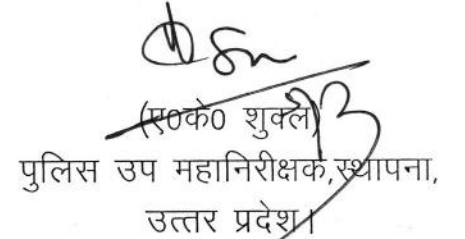 (ए०के० शुक्ल)
पुलिस उप महानिरीक्षक,स्थापना,
उत्तर प्रदेश।